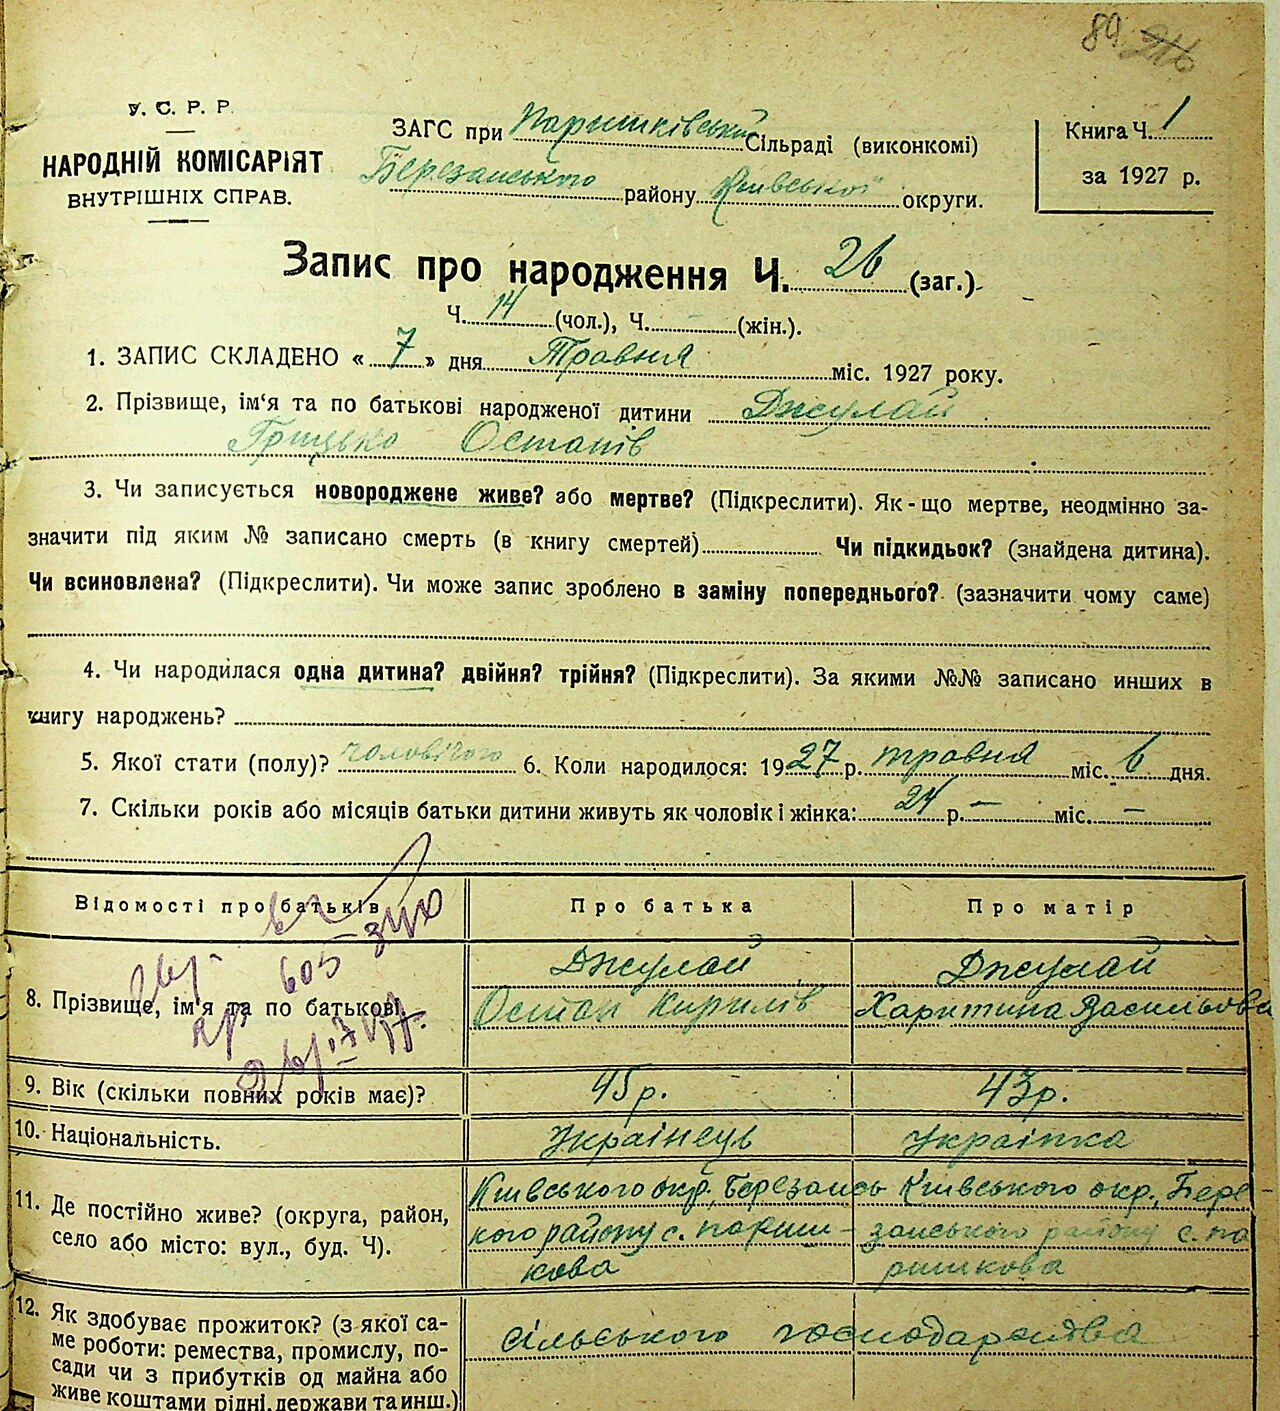 89
У. С. Р. Р.
НАРОДНІЙ КОМІСАРІЯТ
ВНУТРІШНІХ СПРАВ.
ЗАГС при Паришківській Сільраді (виконкомі)
Березанського району Київської округи.
Книга Ч. 1
за 1927 р.
Запис про народження Ч. 26 (заг.)
Ч. 14 (чол.), Ч. - (жін.).
1. ЗАПИС СКЛАДЕНО « 7 » дня Травня міс. 1927 року.
2. Прізвище, ім'я та по батькові народженої дитини Джулай
Грицько Остапів
3. Чи записується новороджене живе? або мертве? (Підкреслити). Як-що мертве, неодмінно за-
значити під яким № записано смерть (в книгу смертей) Чи підкидьок? (знайдена дитина).
Чи всиновлена? (Підкреслити). Чи може запис зроблено в заміну попереднього? (зазначити чому саме)
4. Чи народилася одна дитина? двійня? трійня? (Підкреслити). За якими №№ записано инших в
книгу народжень?
5. Якої стати (полу)? чоловічого 6. Коли народилося: 1927 р. травня міс. 6 дня.
7. Скільки років або місяців батьки дитини живуть як чоловік і жінка: 24 р. — міс. —
Відомості про батьків Про батька Про матір
8. Прізвище, ім'я та по батькові. Джулай Остап Кирилів Джулай Харитина Васильова
605
9. Вік (скільки повних років має)? 45р. 43р.
10. Національність. Українець Українка
11. Де постійно живе? (округа, район,
село або місто: вул., буд. Ч).
Київського окр., Березансь
кого району с. париш-
кова
Київського окр., Бере-
занського району с. па
ришкова
12. Як здобуває прожиток? (з якої са-
ме роботи: ремества, промислу, по-
сади чи з прибутків од майна або
живе коштами рідні, держави та инш.)
сільського господарства